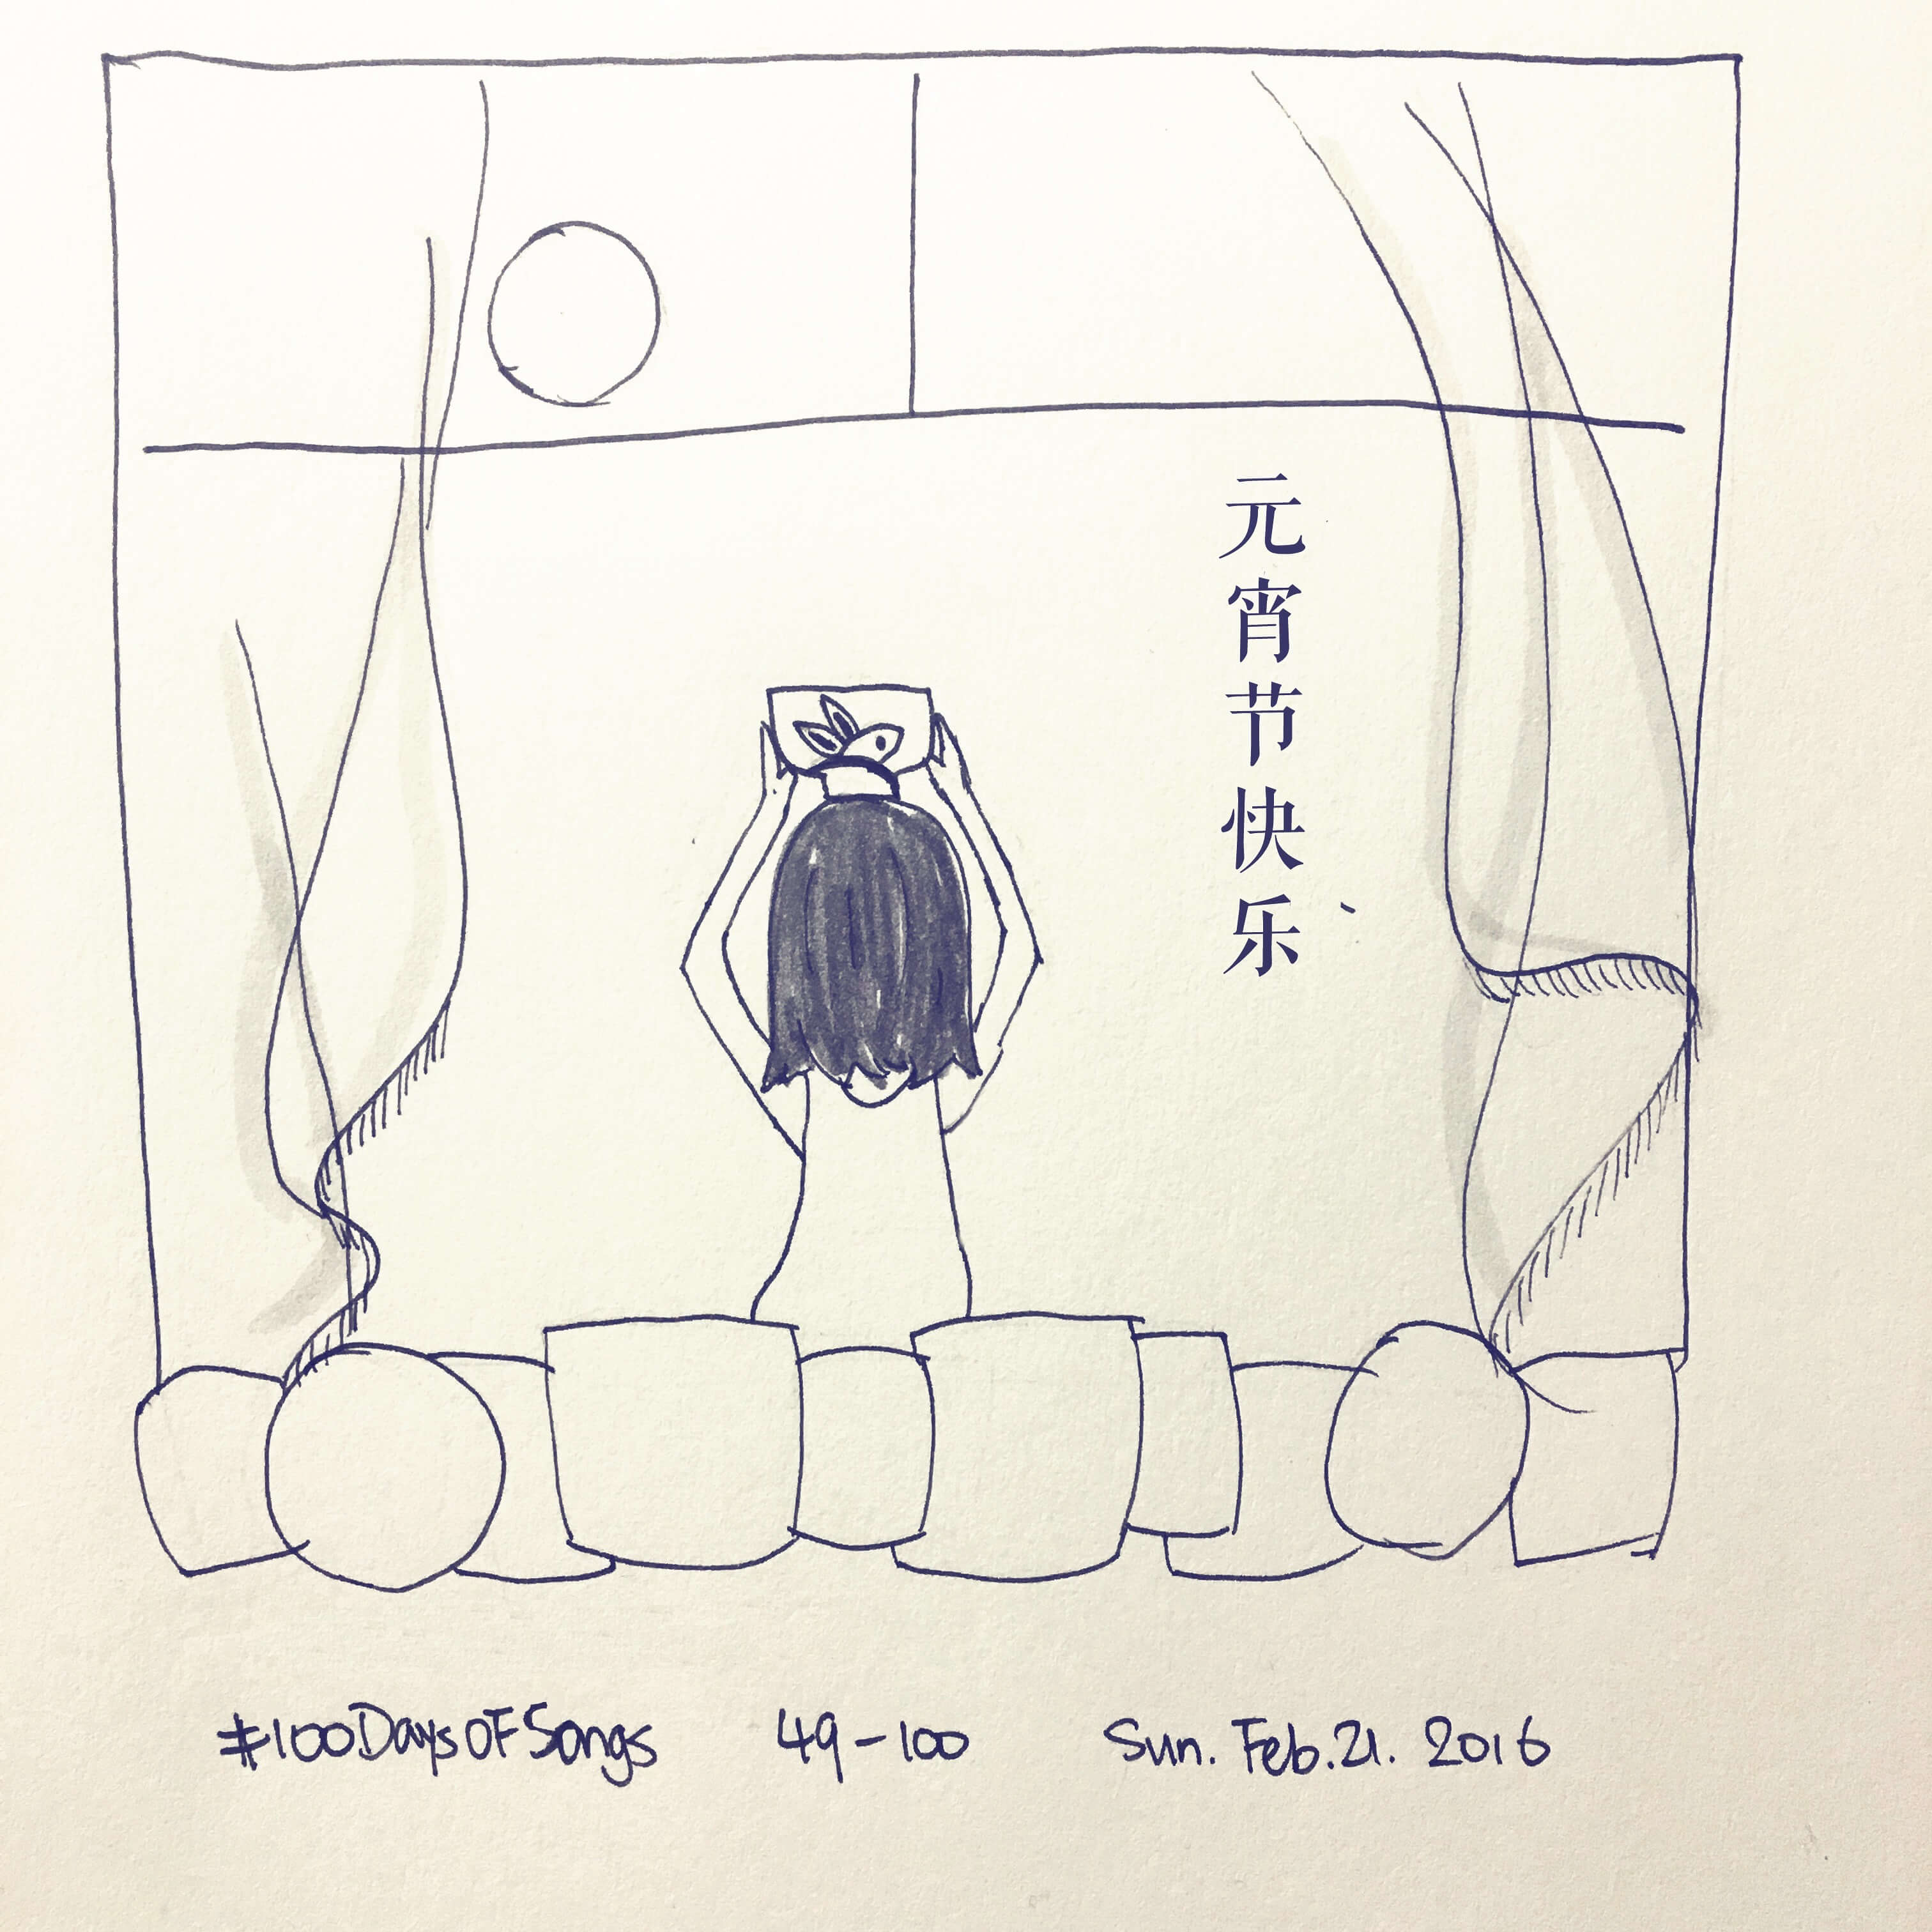 元宵节快乐
#100DaysOfSongs 49-100 Sun. Feb. 21. 2016